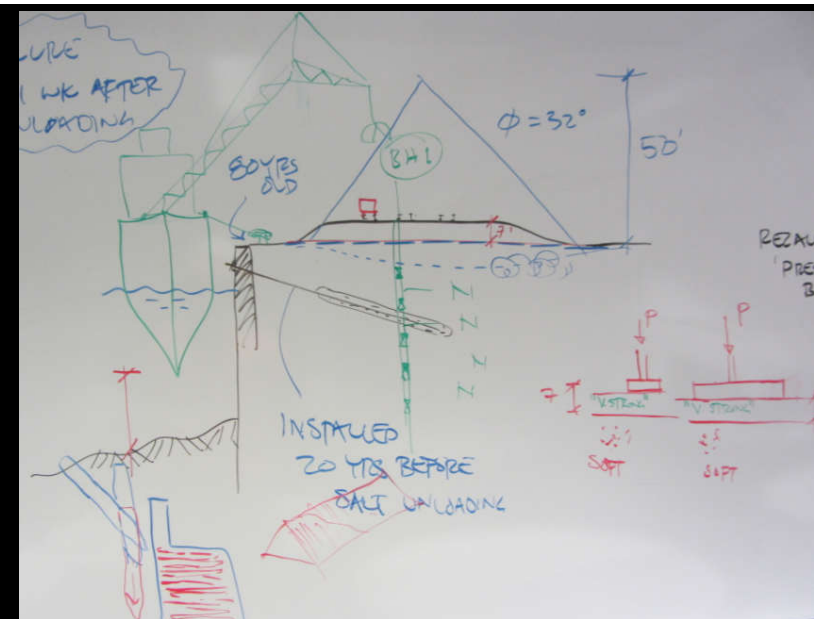 1 WK AFTER
80 YRS
OLD
BH1
φ = 32°
50'
7'
N
N
N
N
INSTALLED
20 YRS BEFORE
SALT UNLOADING
P
P
7
"V. STRONG"
"V. STRONG"
SOFT
SOFT